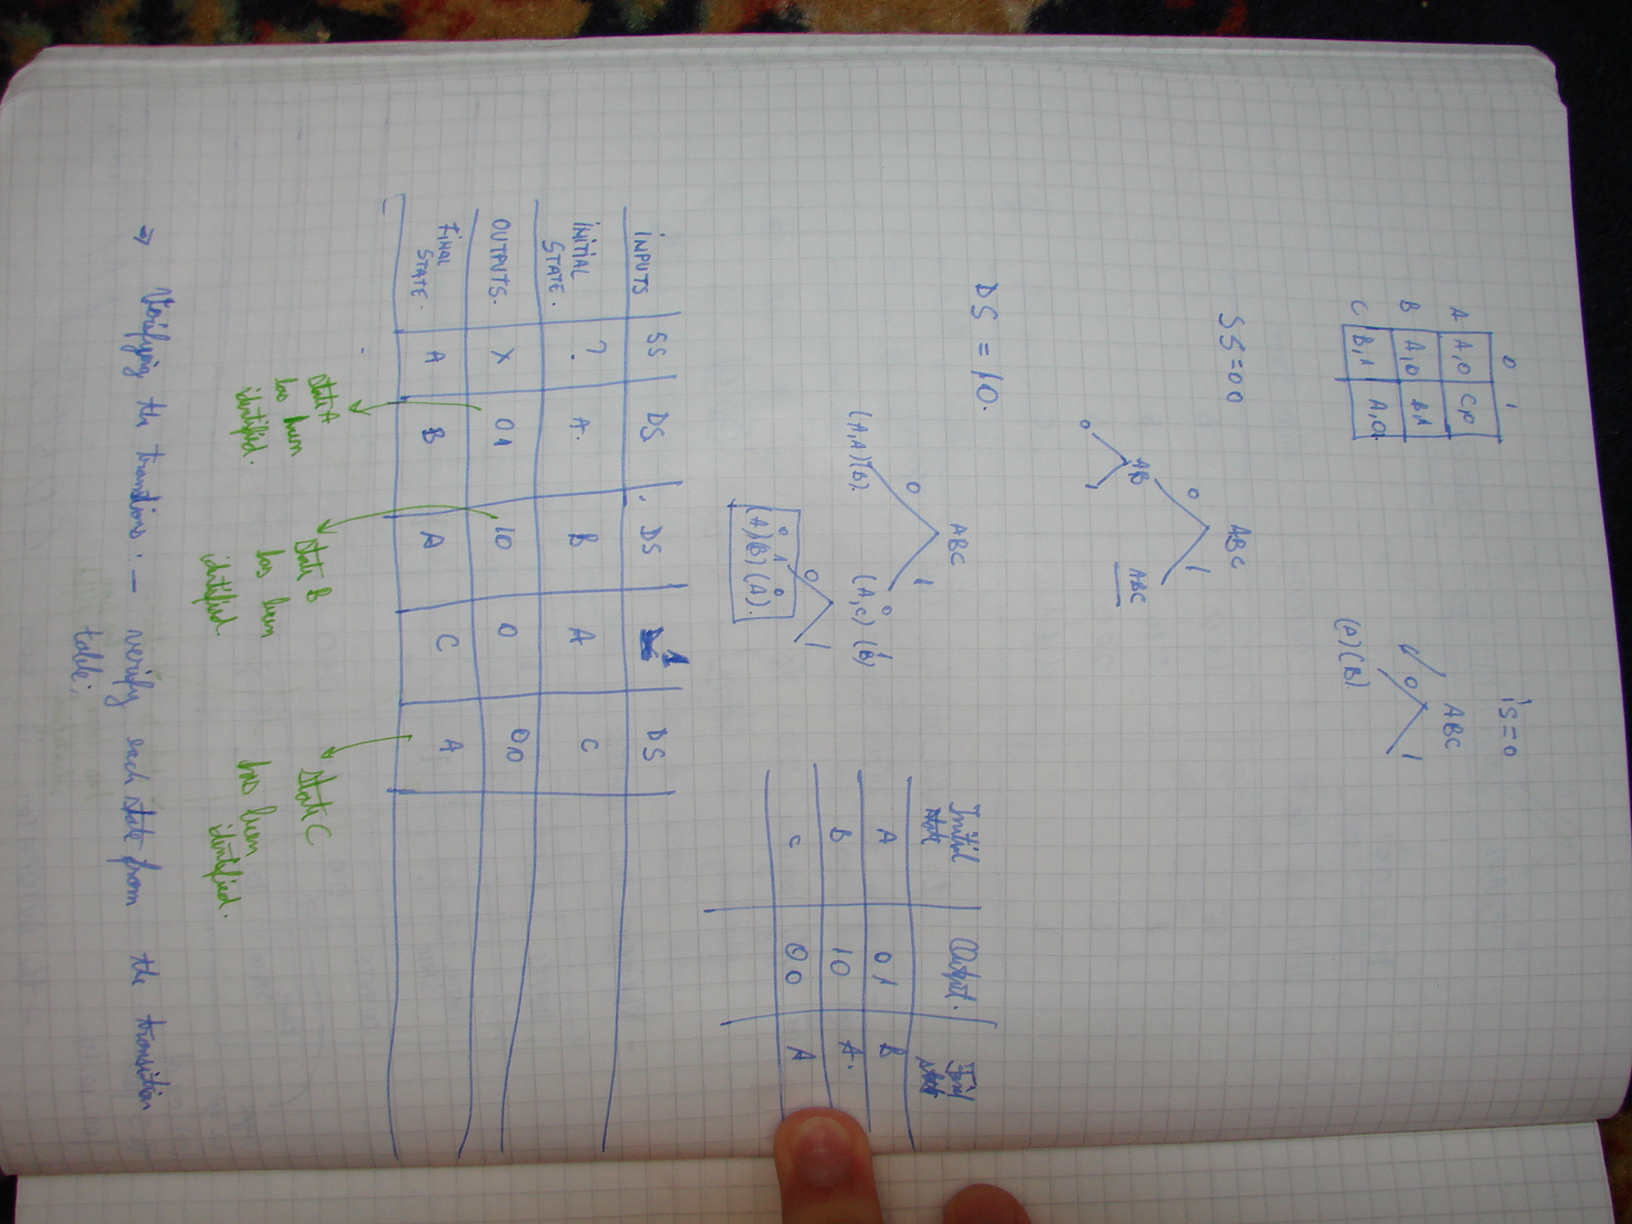 0 1
A A,0 C,0
B A,0 B,1
C B,1 A,0
iS=0
ABC
0 1
(A)(B)
SS=00
ABC
0 1
AB ABC
0 1
DS = 10.
ABC
0 1
(A,A)(B). (A,C)(B)
0 1
0 1
0 1 0
(A)(B)(A).
Initial state Output. Final state
A 01 B
B 10 A.
C 00 A
INPUTS SS DS DS 1 DS
INITIAL STATE. ? A. B A C
OUTPUTS. X 01 10 0 00
FINAL STATE. A B A C A
State A
has been
identified.
State B
has been
identified.
State C
has been
identified.
→ Verifying the transitions :- verify each state from the transition
table;